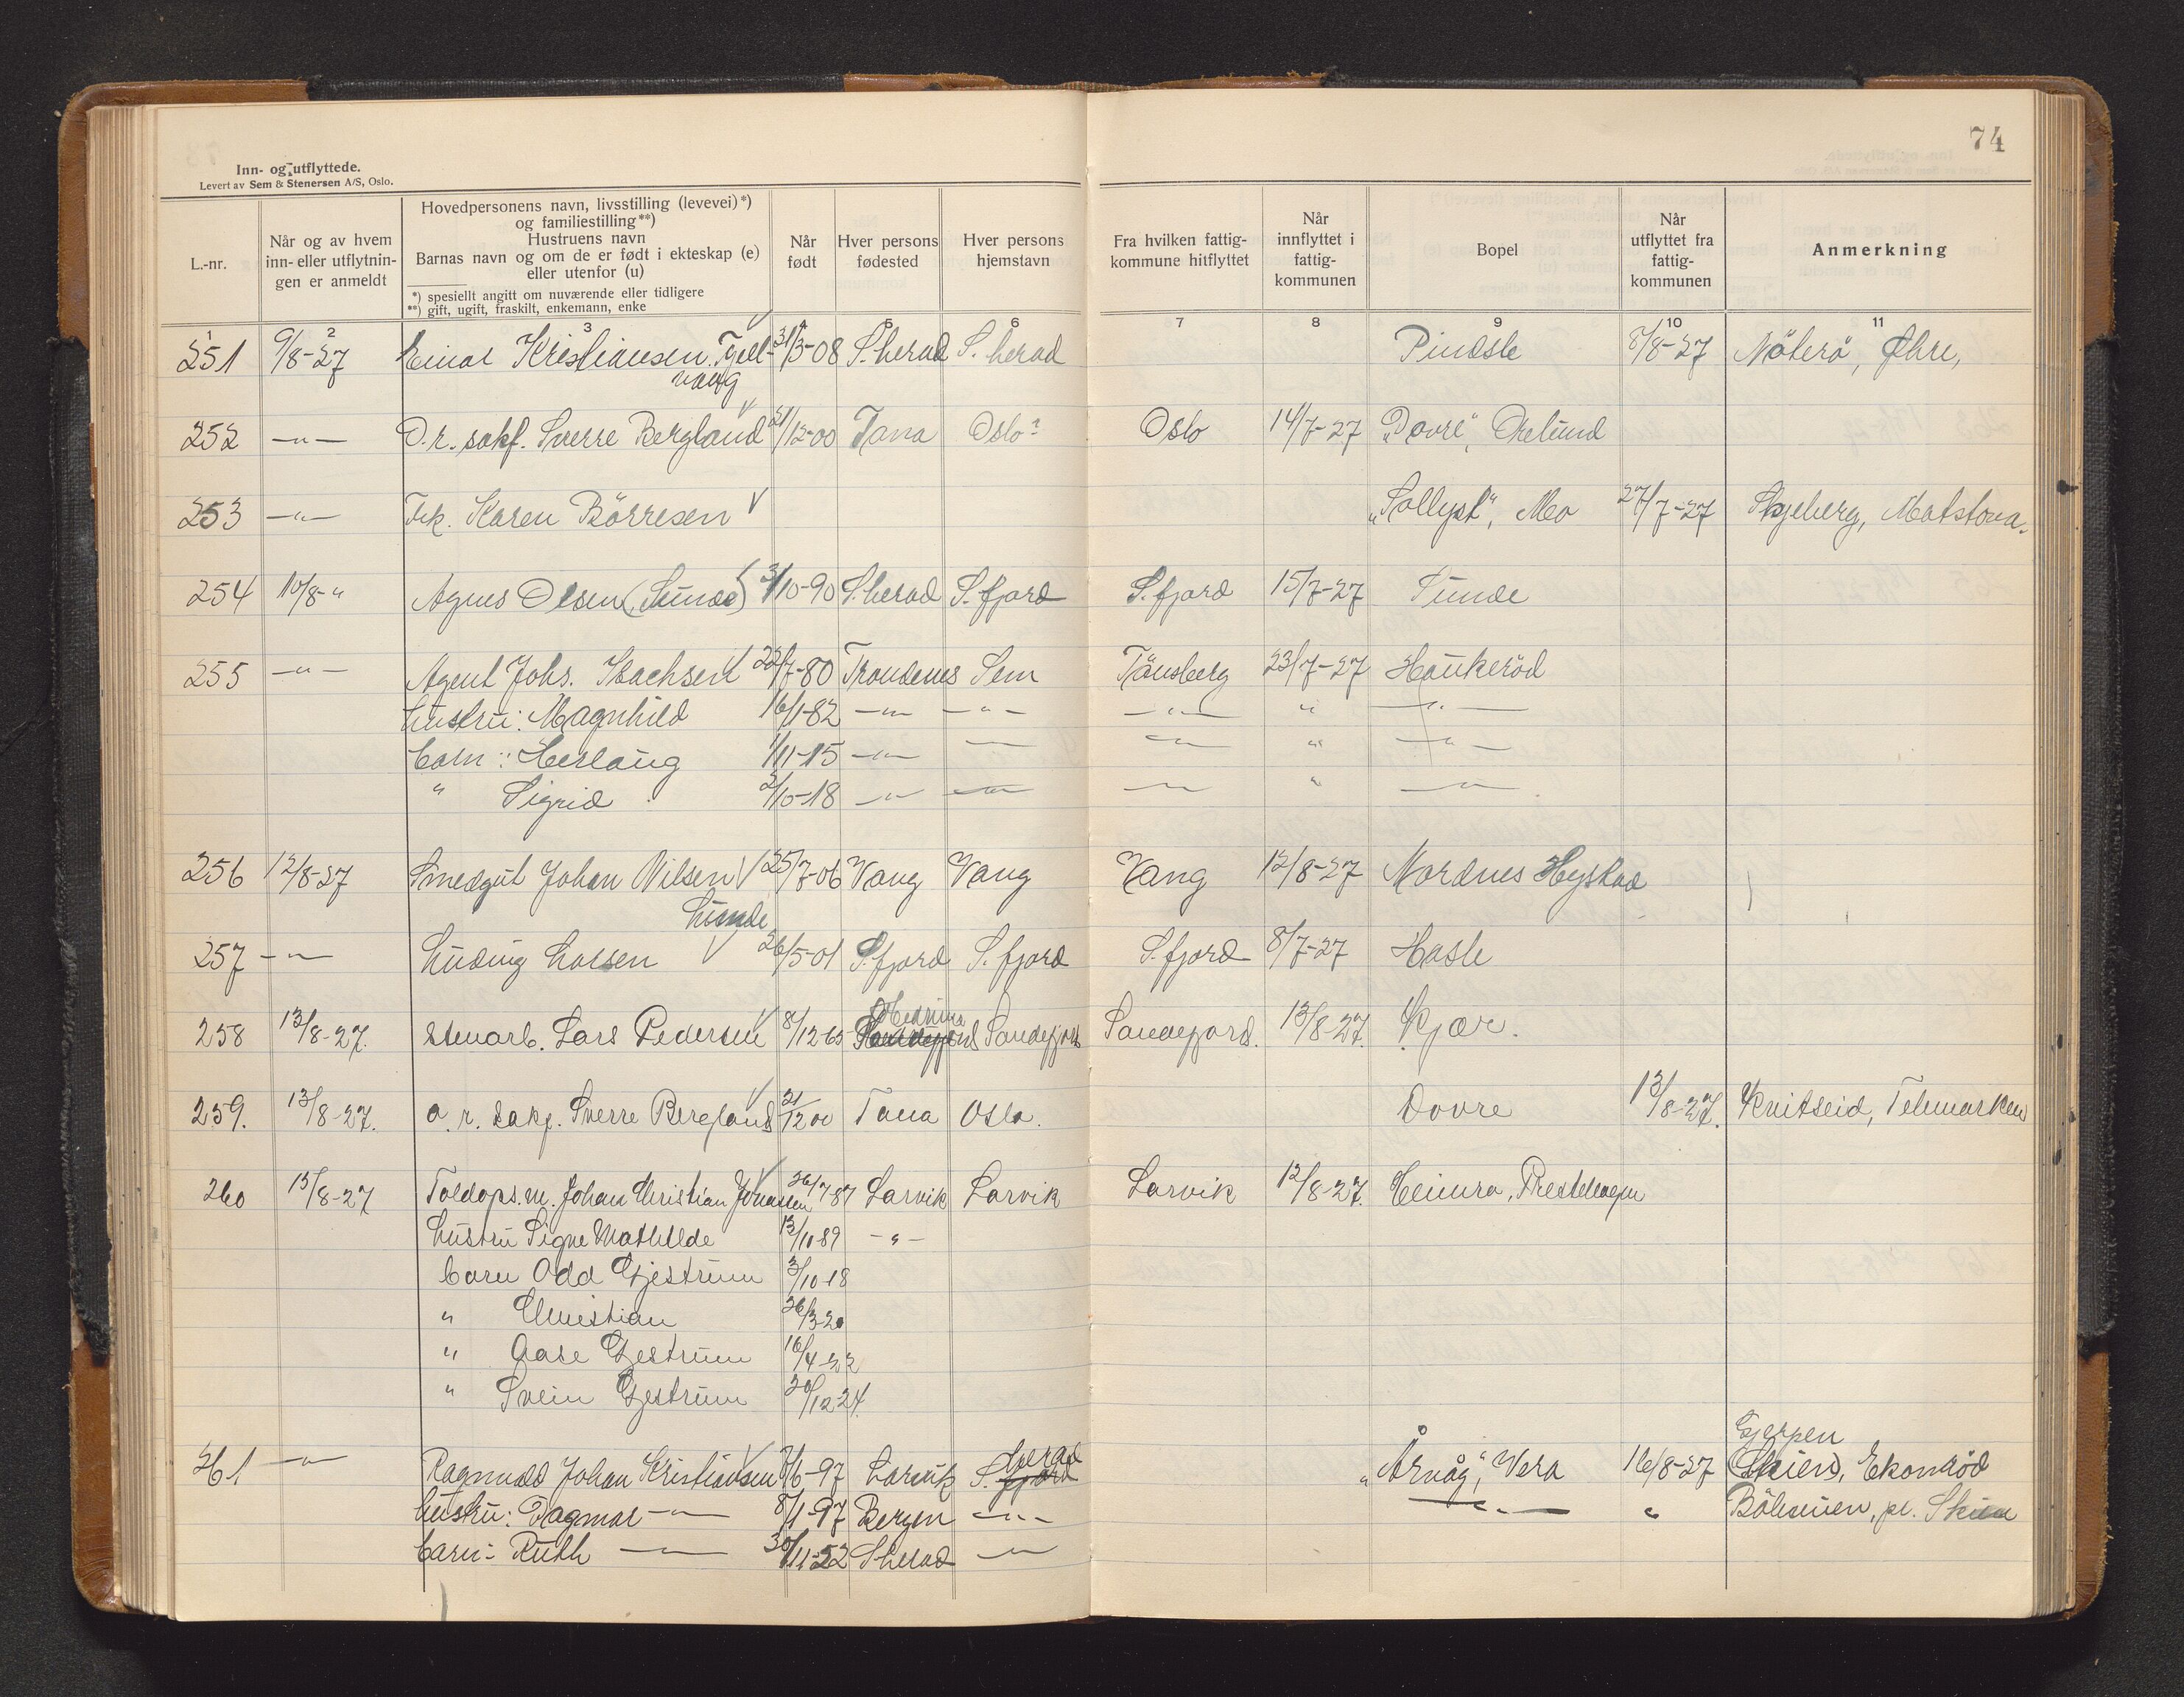 74
Inn- og utflyttede.
Levert av Sem & Stenersen A/S, Oslo.
L.-nr.
Når og av hvem inn- eller utflytnin- gen er anmeldt
Hovedpersonens navn, livsstilling (levevei)*)
og familiestilling**)
Hustruens navn
Barnas navn og om de er født i ekteskap (e)
eller utenfor (u)
*) spesiellt angitt om nuværende eller tidligere
**) gift, ugift, fraskilt, enkemann, enke
Når født
Hver persons fødested
Hver persons hjemstavn
Fra hvilken fattig- kommune hitflyttet
Når innflyttet i fattig- kommunen
Bopel
Når utflyttet fra fattig- kommunen
Anmerkning
1 2 3 4 5 6 7 8 9 10 11
251 9/8-27 Einar Kristiansen Tjell- 31/3-08 S. herad S. herad Pindsle 8/8-27 Nøterø, Øhre,
vang
252 -"- O.r. sakf. Sverre Bergland 21/12-00 Tana Oslo? Oslo 14/7-27 "Dovre", Orelund
253 -"- Frk. Karen Börresen "Sollyst", Mo 27/7-27 Skjeberg, Matstova.
254 10/8-" Agnes Olsen (Sunde) 3/10-90 S. herad S. fjord S. fjord 15/7-27 Sunde
255 -"- Agent Johs. Isachsen 22/7-80 Trondenes Sem Tönsberg 23/7-27 Haukeröd
hustru: Magnhild 16/1-82 -"- -"- -"- " -"-
barn: Herlaug 1/11-15 -"- -"- -"- " -"-
" Sigrid 2/10-18 -"- -"- -"- " -"-
256 12/8-27 Smedgut Johan Nilsen 25/7-06 Vang Vang Vang 12/8-27 Nordnes Hystad
Lunde
257 -"- Ludvig Larsen 26/5-01 S. fjord S. fjord S. fjord 8/7-27 Hasle
Hedrum
258 13/8-27. Stenarb. Lars Pedersen 8/12-65 Sandefjord Sandefjord Sandefjord. 13/8-27. Kjær.
259. 13/8-27. O. r. sakf. Sverre Bergland 21/12 00 Tana Oslo. Dovre 13/8-27. Kvitseid, Telemarken
260 15/8-27 Toldops.m. Johan Christian Jonassen 26/7 87 Larvik Larvik Larvik 12/8-27. Heimro, Prestehagen
hustru Signe Mathilde 13/11 89 -"-
barn Odd Gjestrum 3/10-18
" Christian 26/3-20
" Aase Gjestrum 16/4-22
" Svein Gjestrum 20/12-24.
herad Gjerpen
261 -"- Ragnvald Johan Kristiansen 7/6-97 Larvik S. fjord "Årvåg", Vera 16/8-27 (Skien), Ekomröd
hustru: Dagmar -"- 8/1-97 Bergen -"- -"- " Bölevien, pr. Skien
barn: Ruth -"- 30/11-22 S herad -"-